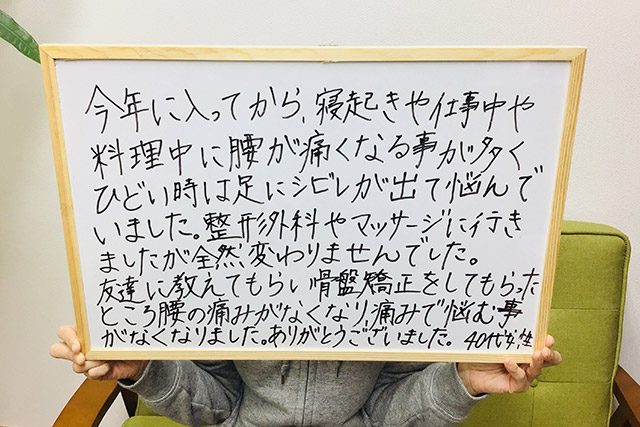 今年に入ってから、寝起きや仕事中や
料理中に腰が痛くなる事が多く
ひどい時は足にシビレが出て悩んで
いました。整形外科やマッサージに行き
ましたが全然変わりませんでした。
友達に教えてもらい骨盤矯正をしてもらった
ところ腰の痛みがなくなり、痛みで悩む事
がなくなりました。ありがとうございました。 40代女性